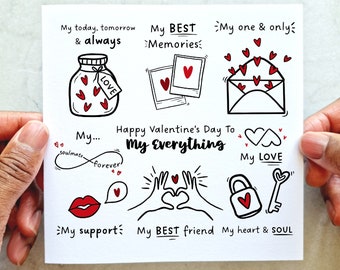 My today, tomorrow
& always
My BEST
Memories
My one & only
LOVE
My...
soulmate
Forever
Happy Valentine's Day To
My Everything
My LOVE
My support
My BEST friend
My heart & SOUL